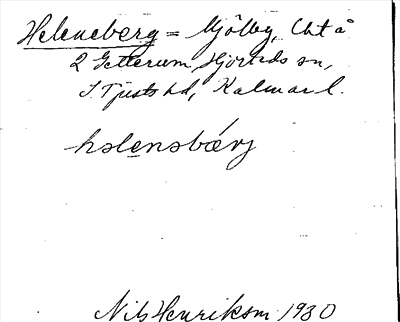 Heleneberg = Mjölby, Lht å
2 Getterum, Hjorteds sn,
S. Tjusts hd, Kalmar l.
həlenəbærj
Nils Henriksson 1930